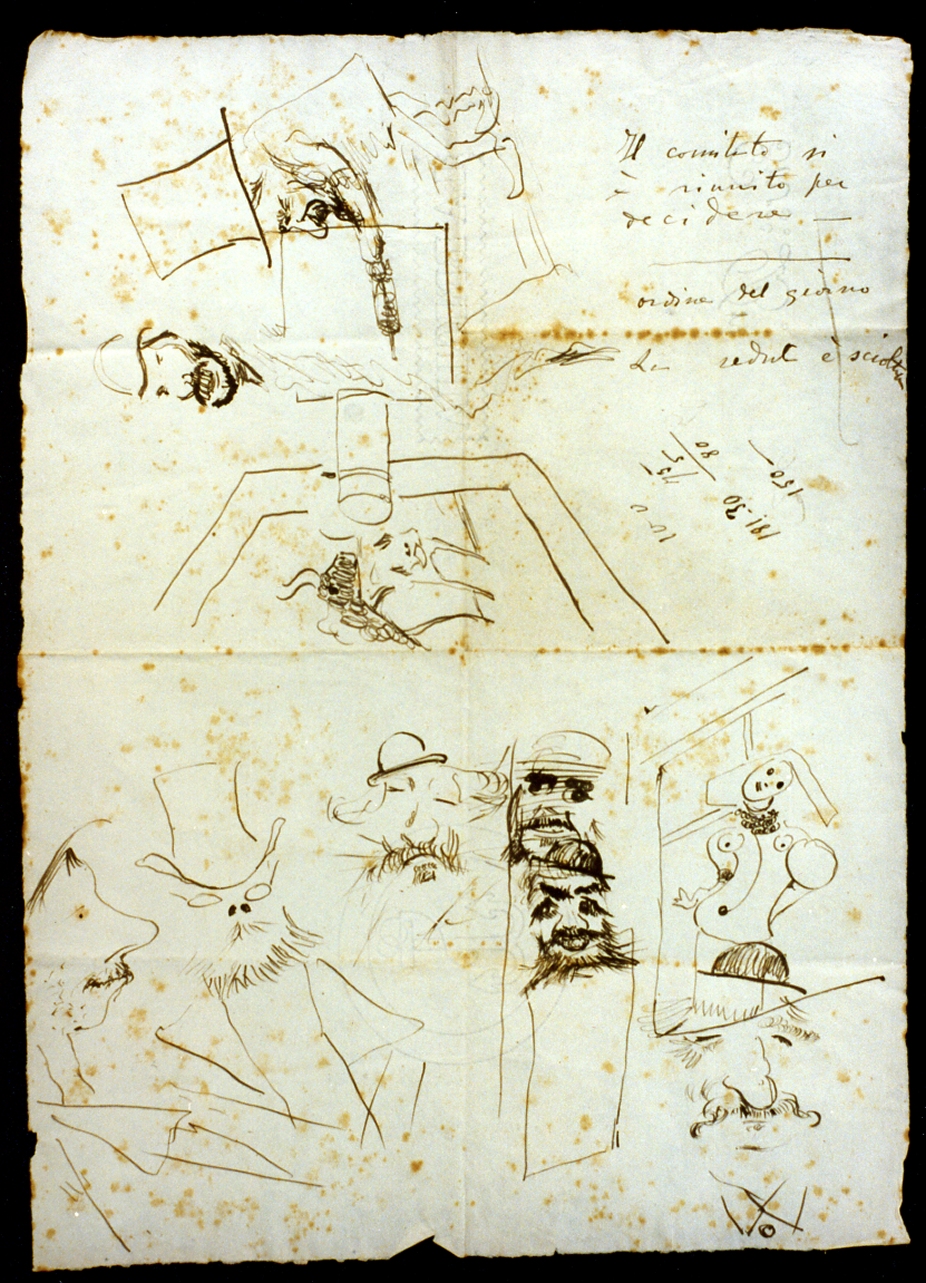 Il comitato si
è riunito per
decidere —
ordine del giorno
La sedut è sciolta
80
150
191-30